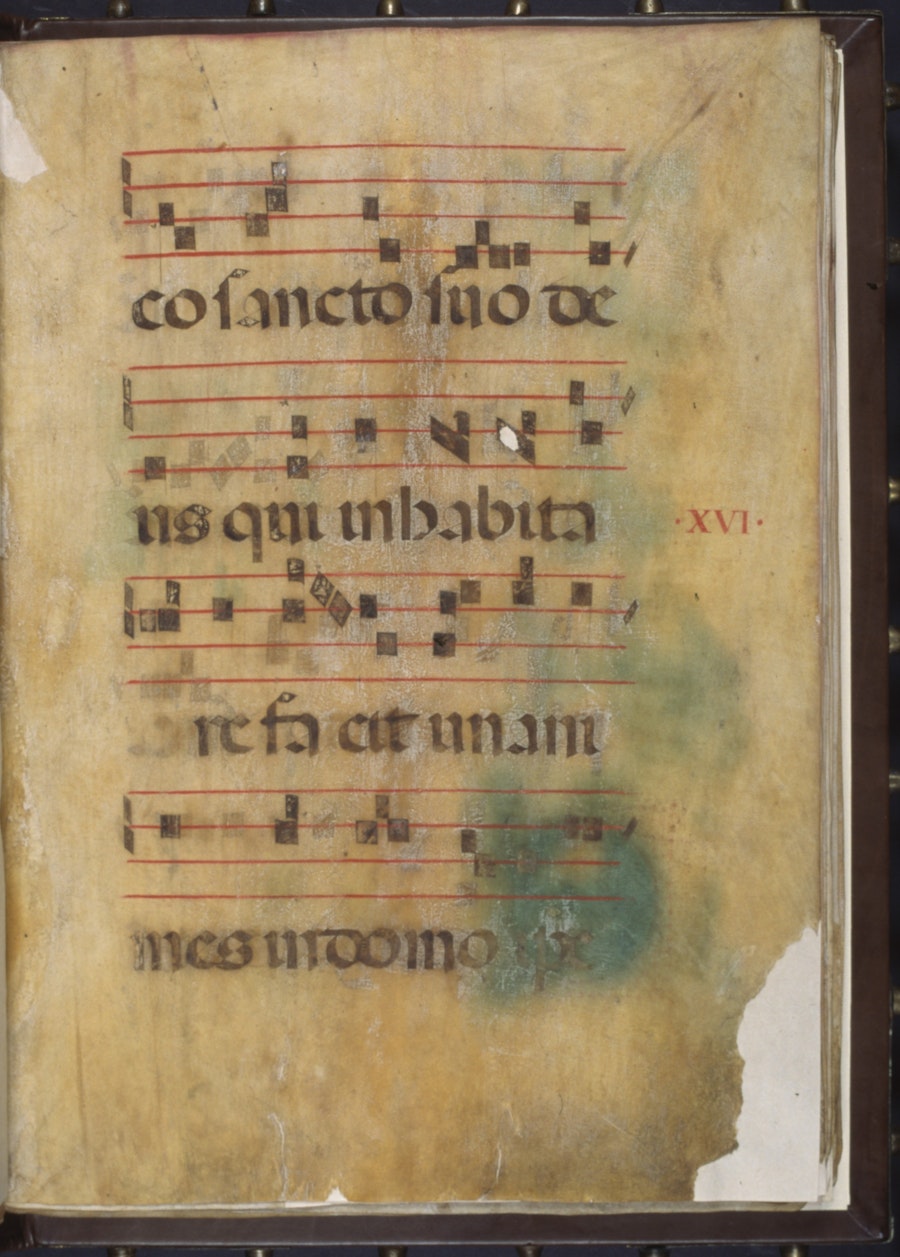 co sancto suo de
us qui inhabita
·XVI·
re fa cit unani
mes in domo ipe